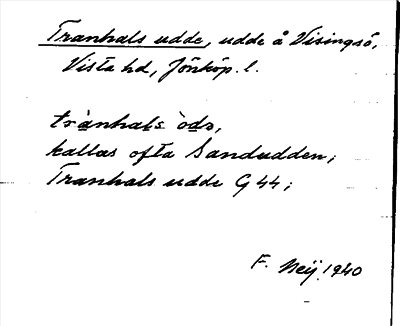 Tranhals udde, udde å Visingsö,
Vista hd, Jönköp. l.
trànhals òds,
kallas ofta Sandudden;
Tranhals udde G 44;
F. Neij 1940